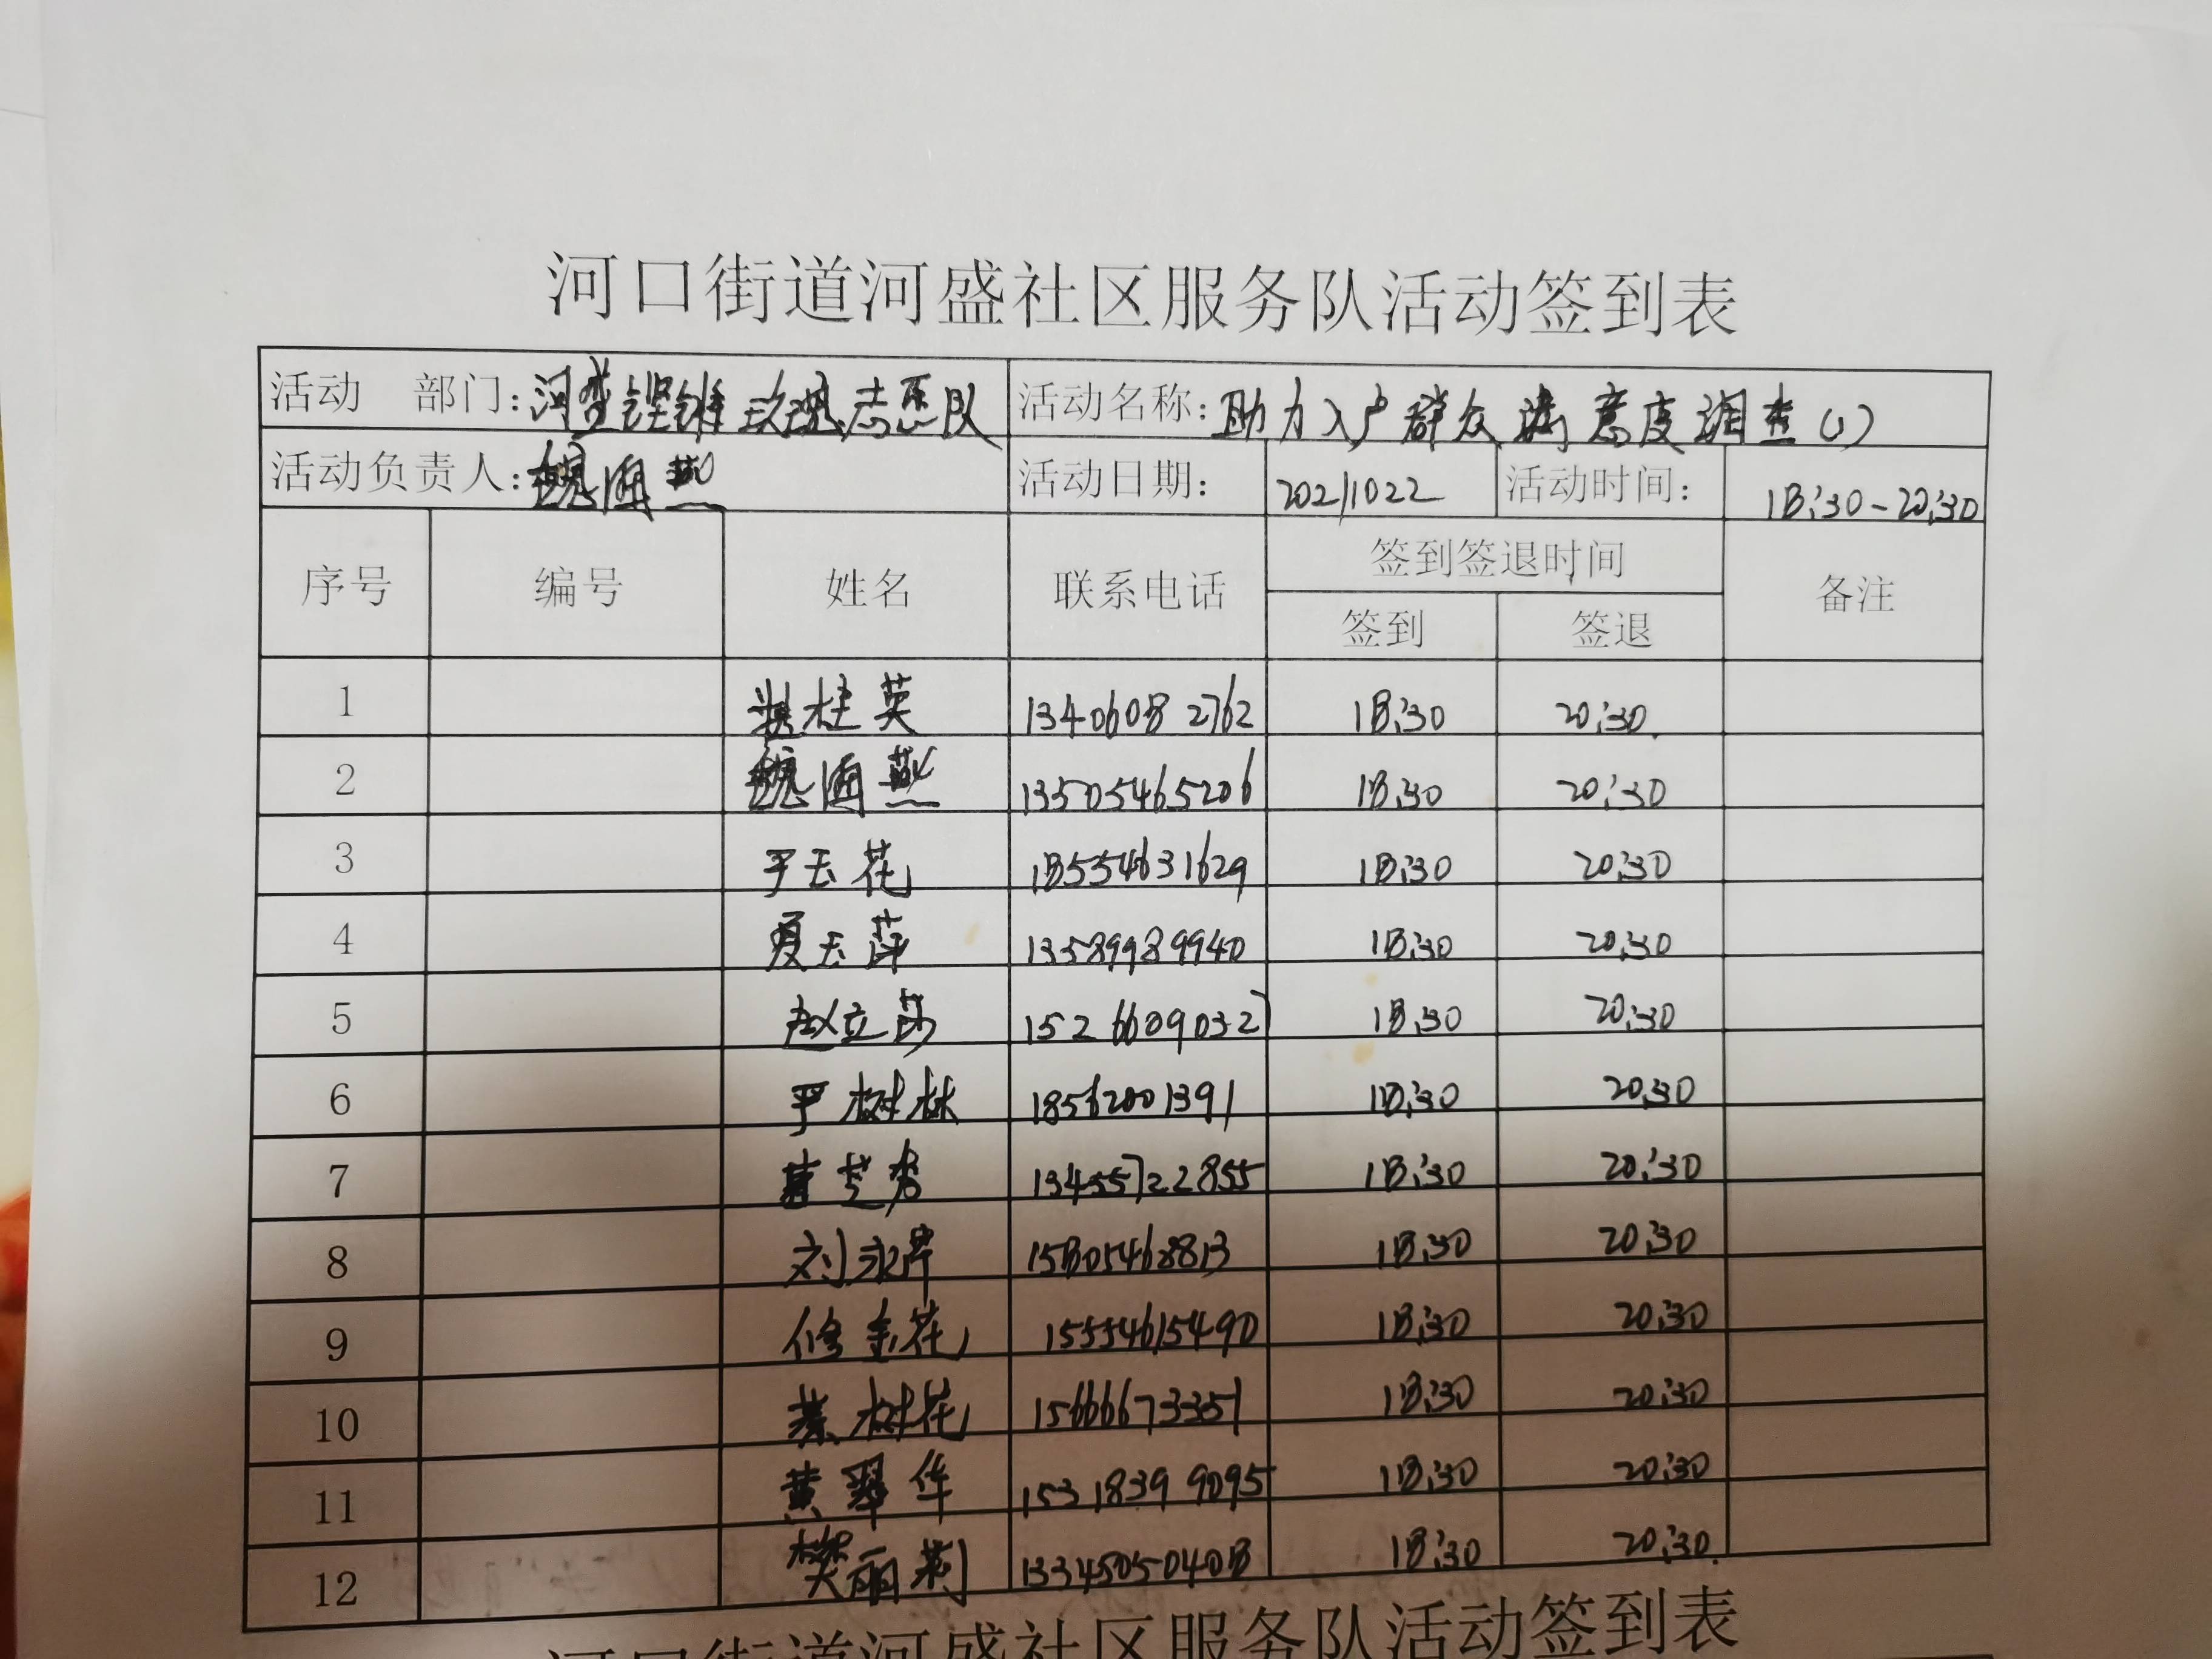 河口街道河盛社区服务队活动签到表
活动 部门: 志愿队 活动名称: 助力入户群众满意度调查(1)
活动负责人: 魏海燕 活动日期: 20211022 活动时间: 18:30-20:30
序号 编号 姓名 联系电话 签到签退时间 备注
签到 签退
1 桂英 13406082762 18:30 20:30
2 魏海燕 13505465206 18:30 20:30
3 于玉花 18554631629 18:30 20:30
4 夏玉萍 13589989940 18:30 20:30
5 赵立莎 15266090327 18:30 20:30
6 严树林 18562001391 18:30 20:30
7 13455722855 18:30 20:30
8 刘永芹 15805468813 18:30 20:30
9 修金花 15554615490 18:30 20:30
10 树花 15666673351 18:30 20:30
11 黄翠华 15318399095 18:30 20:30
12 樊丽莉 13345050408 18:30 20:30
河口街道河盛社区服务队活动签到表